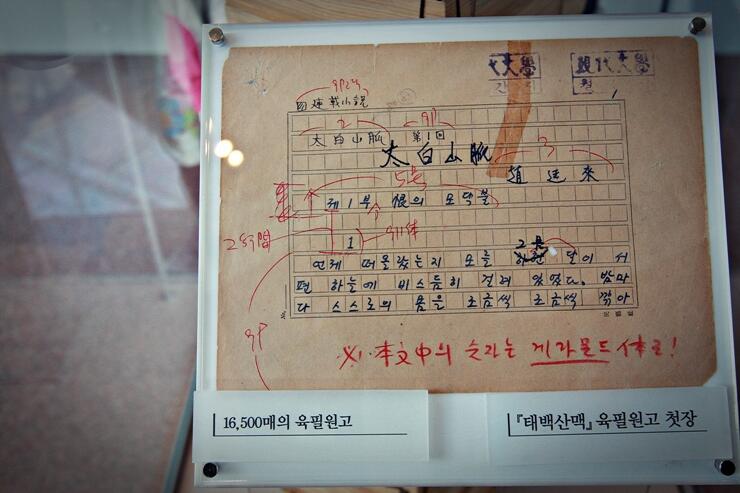 連載小説
太白山脈 第1回
太白山脈
趙廷來
제1부 恨의 모닥불
1
언제 떠올랐는지 모를 그믐달이 서
편 하늘에 비스듬히 걸려 있었다. 밤마
다 스스로의 몸을 조금씩 조금씩 깎아
※ 本文中의 숫자는 게라몬드 体로!
16,500매의 육필원고
『태백산맥』 육필원고 첫장